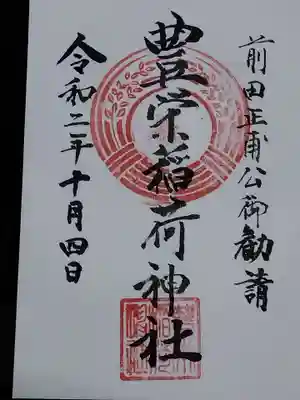 前田正甫公御勧請
豊栄稲荷神社
令和二年十月四日